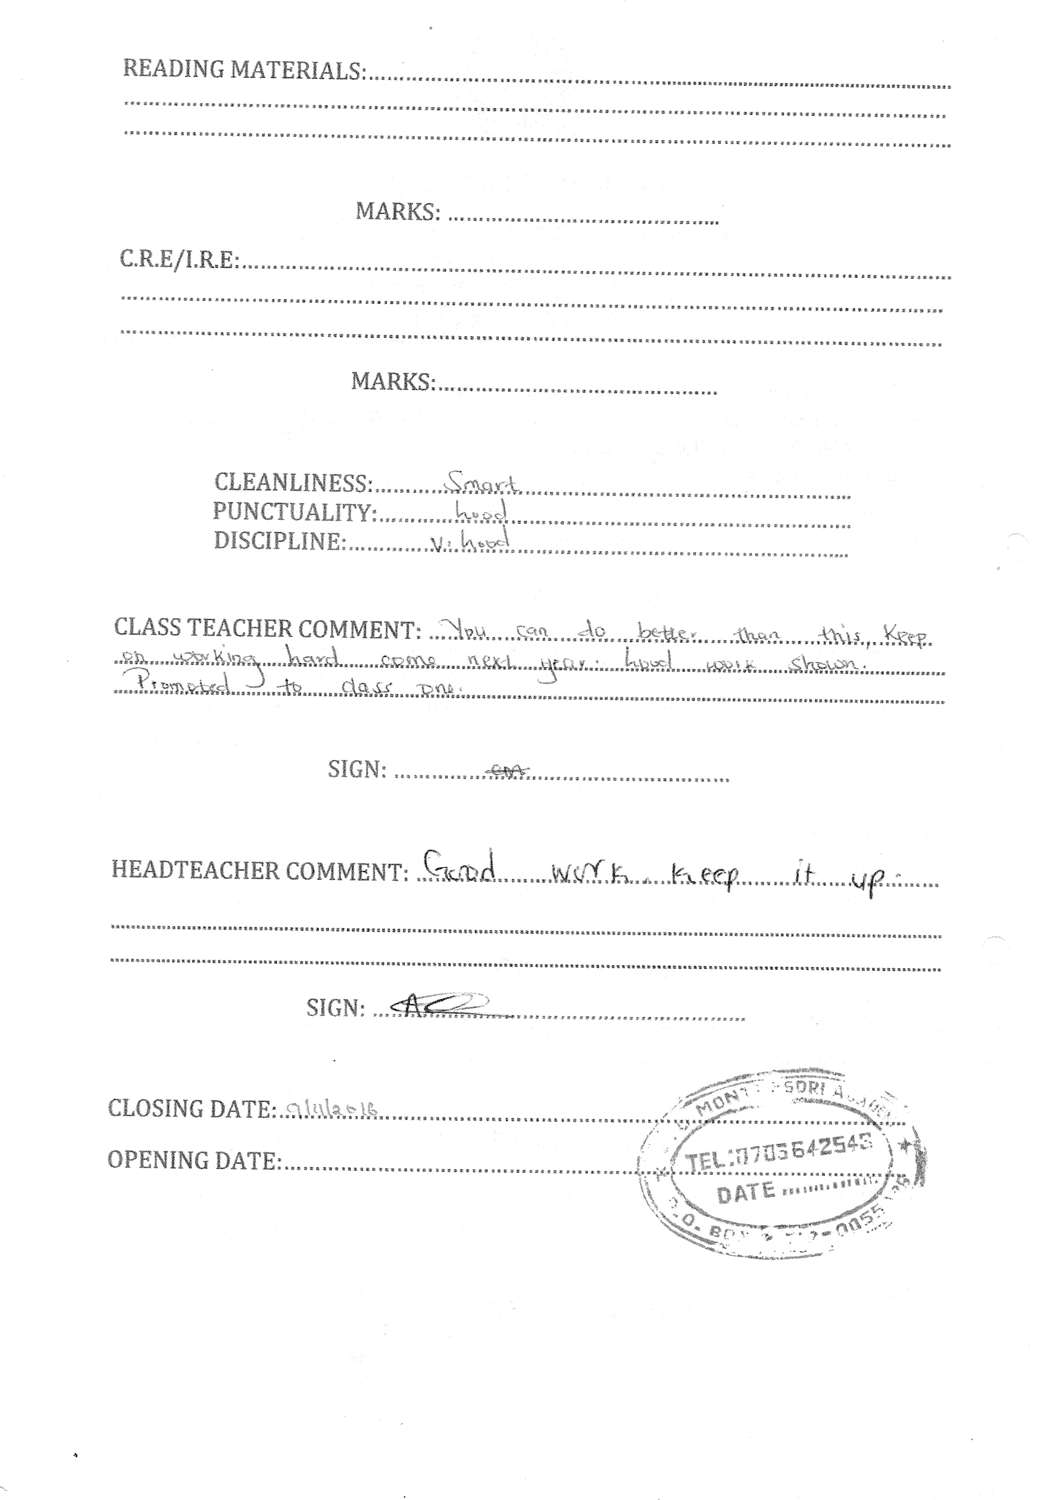 READING MATERIALS:
MARKS:
C.R.E/I.R.E:
MARKS:
CLEANLINESS: Smart
PUNCTUALITY: Good
DISCIPLINE: V. Good
CLASS TEACHER COMMENT: You can do better than this, Keep
on working hard come next year. Good work shown.
Promoted to class one.
SIGN:
HEADTEACHER COMMENT: Good work. Keep it up.
SIGN:
CLOSING DATE:
OPENING DATE:
TEL:0703642543
DATE